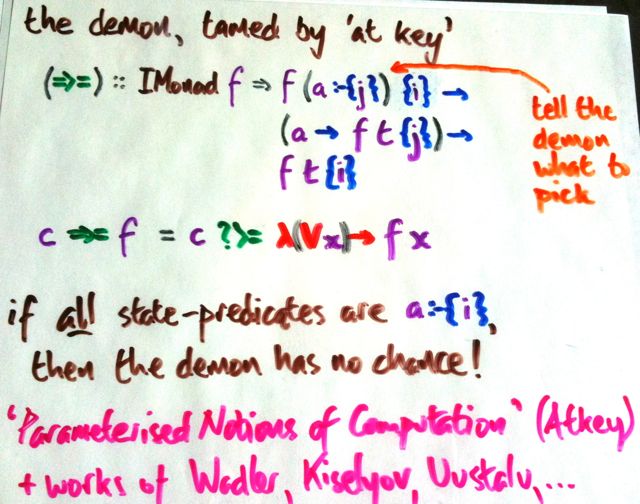 the demon, tamed by 'at key'
(=>>=) :: IMonad f ⇒ f (a :-{j}) {i} →
(a → f t {j}) →
f t {i}
tell the
demon
what to
pick
c =>>= f = c ?>= λ(V x) → f x
if all state-predicates are a:-{i},
then the demon has no chance!
'Parameterised Notions of Computation' (Atkey)
+ works of Wadler, Kiselyov, Uustalu, ...